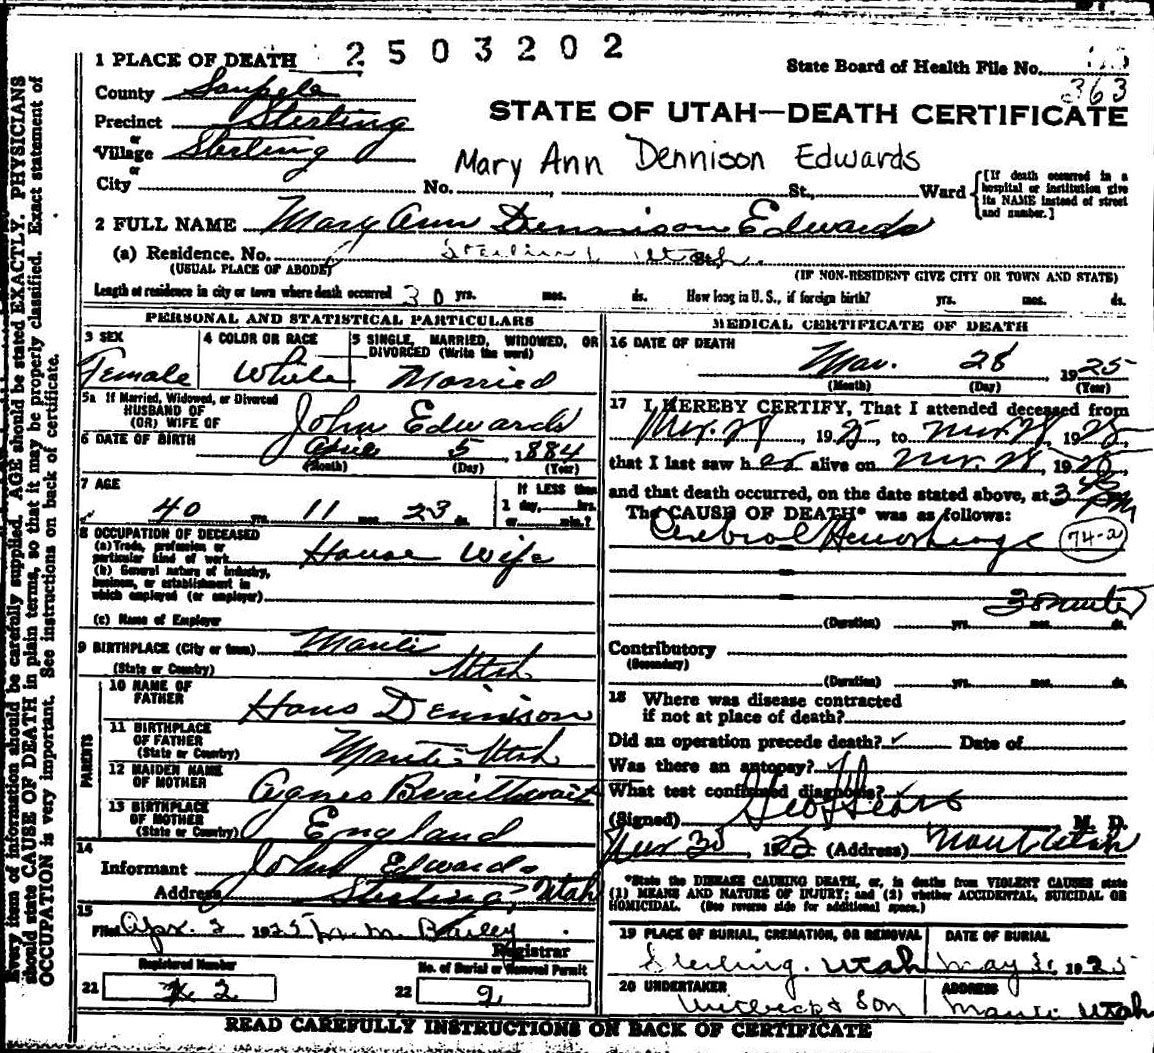 2503202
1 PLACE OF DEATH
State Board of Health File No.
363
County Sanpete
STATE OF UTAH—DEATH CERTIFICATE
Precinct Sterling
or
Village Sterling
or
Mary Ann Dennison Edwards
City No. , St., Ward
[If death occurred in a hospital or institution give its NAME instead of street and number.]
2 FULL NAME Mary Ann Dennison Edwards
(a) Residence. No. Sterling Utah.
(USUAL PLACE OF ABODE)
(IF NON-RESIDENT GIVE CITY OR TOWN AND STATE)
Length of residence in city or town where death occurred 30 yrs. mos. ds. How long in U. S., if foreign birth? yrs. mos. ds.
PERSONAL AND STATISTICAL PARTICULARS
3 SEX
Female
4 COLOR OR RACE
White
5 SINGLE, MARRIED, WIDOWED, OR DIVORCED (Write the word)
Married
5a If Married, Widowed, or Divorced
HUSBAND OF
(OR) WIFE OF John Edwards
6 DATE OF BIRTH April 5, 1884
(Month) (Day) (Year)
7 AGE
40 yrs. 11 mos. 23 ds.
If LESS than
1 day, hrs.
or min.?
8 OCCUPATION OF DECEASED
(a) Trade, profession or
particular kind of work House Wife
(b) General nature of industry,
business, or establishment in
which employed (or employer)
(c) Name of Employer
9 BIRTHPLACE (City or town) Manti
(State or Country) Utah
PARENTS
10 NAME OF
FATHER Hans Dennison
11 BIRTHPLACE
OF FATHER
(State or Country) Manti Utah
12 MAIDEN NAME
OF MOTHER Agnes Braithwait
13 BIRTHPLACE
OF MOTHER
(State or Country) England
14
Informant John Edwards
Address Sterling, Utah
15
Filed Apr. 2 1925 M. Bailey
Registrar
Registered Number
21
2
No. of Burial or Removal Permit
22 9
MEDICAL CERTIFICATE OF DEATH
16 DATE OF DEATH
Mar. 28 1925
(Month) (Day) (Year)
17 I HEREBY CERTIFY, That I attended deceased from
Mar. 28, 1925, to Mar. 28, 1925
that I last saw her alive on Mar. 28, 1925
and that death occurred, on the date stated above, at 3 45 PM
The CAUSE OF DEATH* was as follows:
Cerebral Hemorrhage 74-a
(Duration) yrs. mos. ds.
Contributory
(Secondary)
(Duration) yrs. mos. ds.
18 Where was disease contracted
if not at place of death?
Did an operation precede death? ✓ Date of
Was there an autopsy? ✓
What test confirmed diagnosis?
(Signed) M. D.
Mar 30 1925 (Address) Manti Utah
*State the DISEASE CAUSING DEATH, or, in deaths from VIOLENT CAUSES state
(1) MEANS AND NATURE OF INJURY; and (2) whether ACCIDENTAL, SUICIDAL OR
HOMICIDAL. (See reverse side for additional space.)
19 PLACE OF BURIAL, CREMATION, OR REMOVAL
Sterling. Utah
DATE OF BURIAL
May 31, 1925
20 UNDERTAKER
& Son
ADDRESS
Manti Utah
READ CAREFULLY INSTRUCTIONS ON BACK OF CERTIFICATE
Every item of information should be carefully supplied. AGE should be stated EXACTLY. PHYSICIANS
should state CAUSE OF DEATH in plain terms, so that it may be properly classified. Exact statement of
OCCUPATION is very important. See instructions on back of certificate.